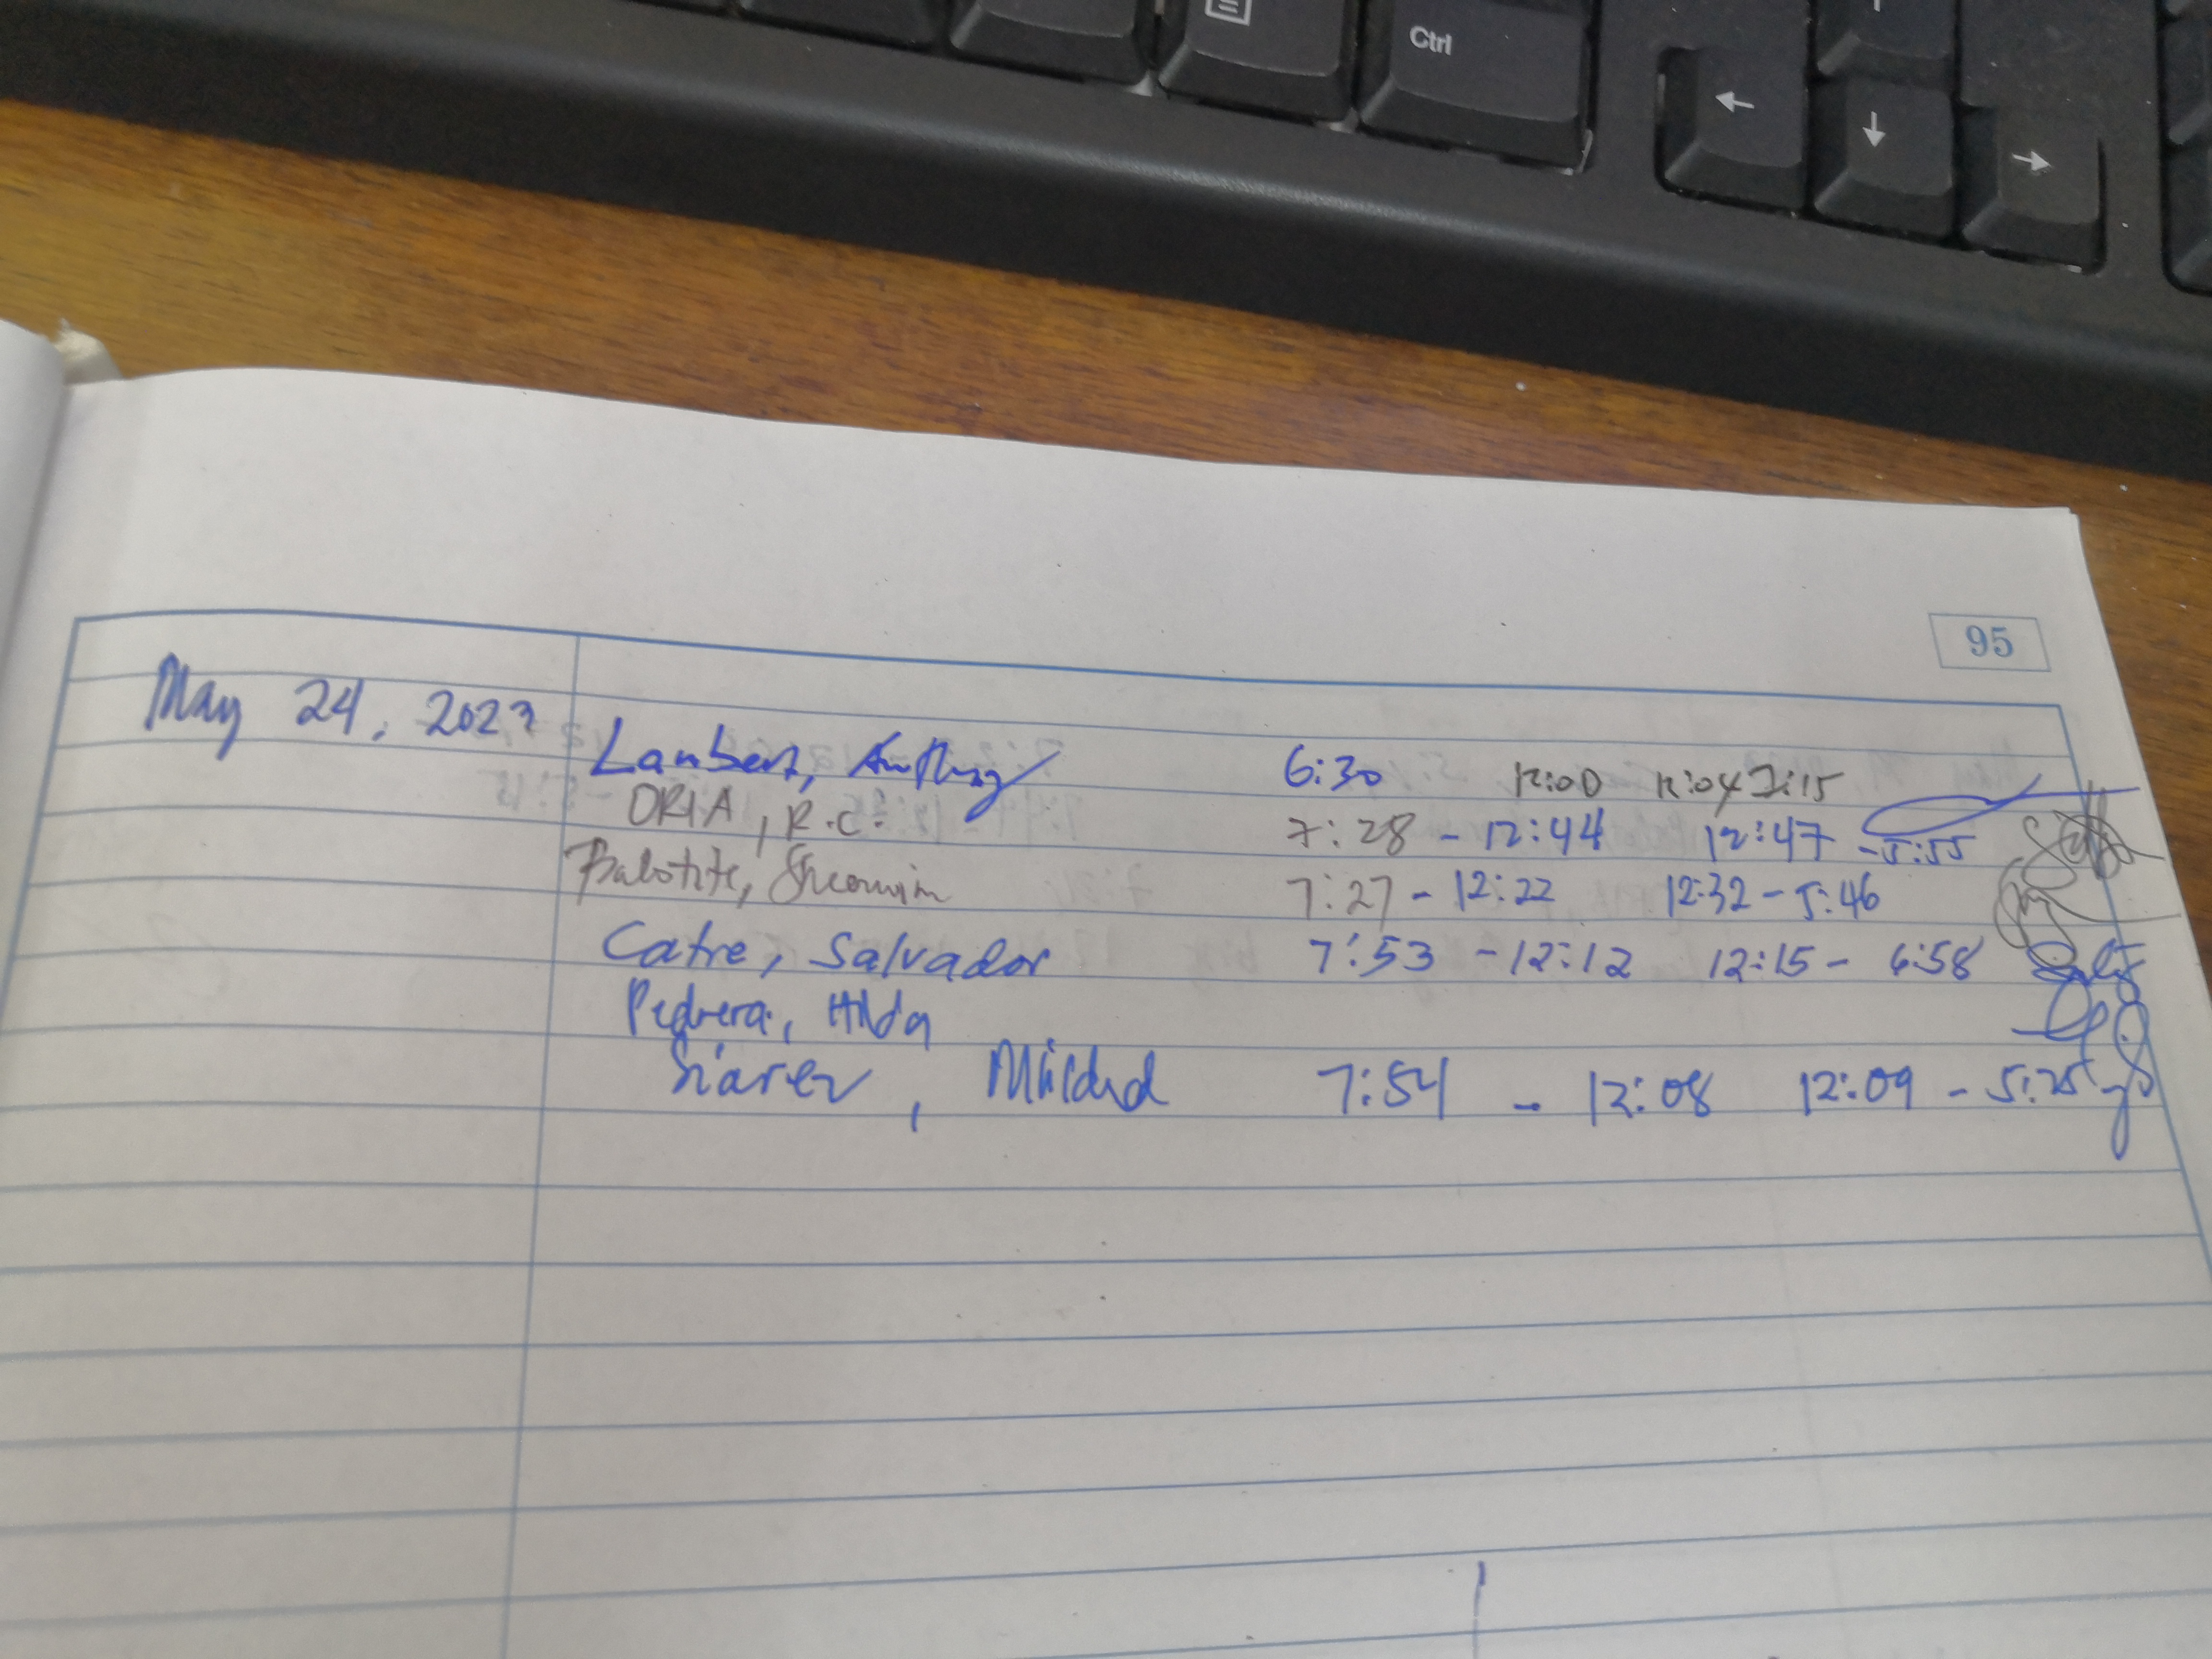 Ctrl
← ↓ →
95
May 24, 2023
Lambert, Anthony 6:30 12:00 12:04 7:15
ORIA, R.C. 7:28 - 12:44 12:47 - 5:55
7:27 - 12:22 12:32 - 5:46
Catre, Salvador 7:53 - 12:12 12:15 - 6:58
Pedrera, Hilda
7:54 - 12:08 12:09 - 5:25